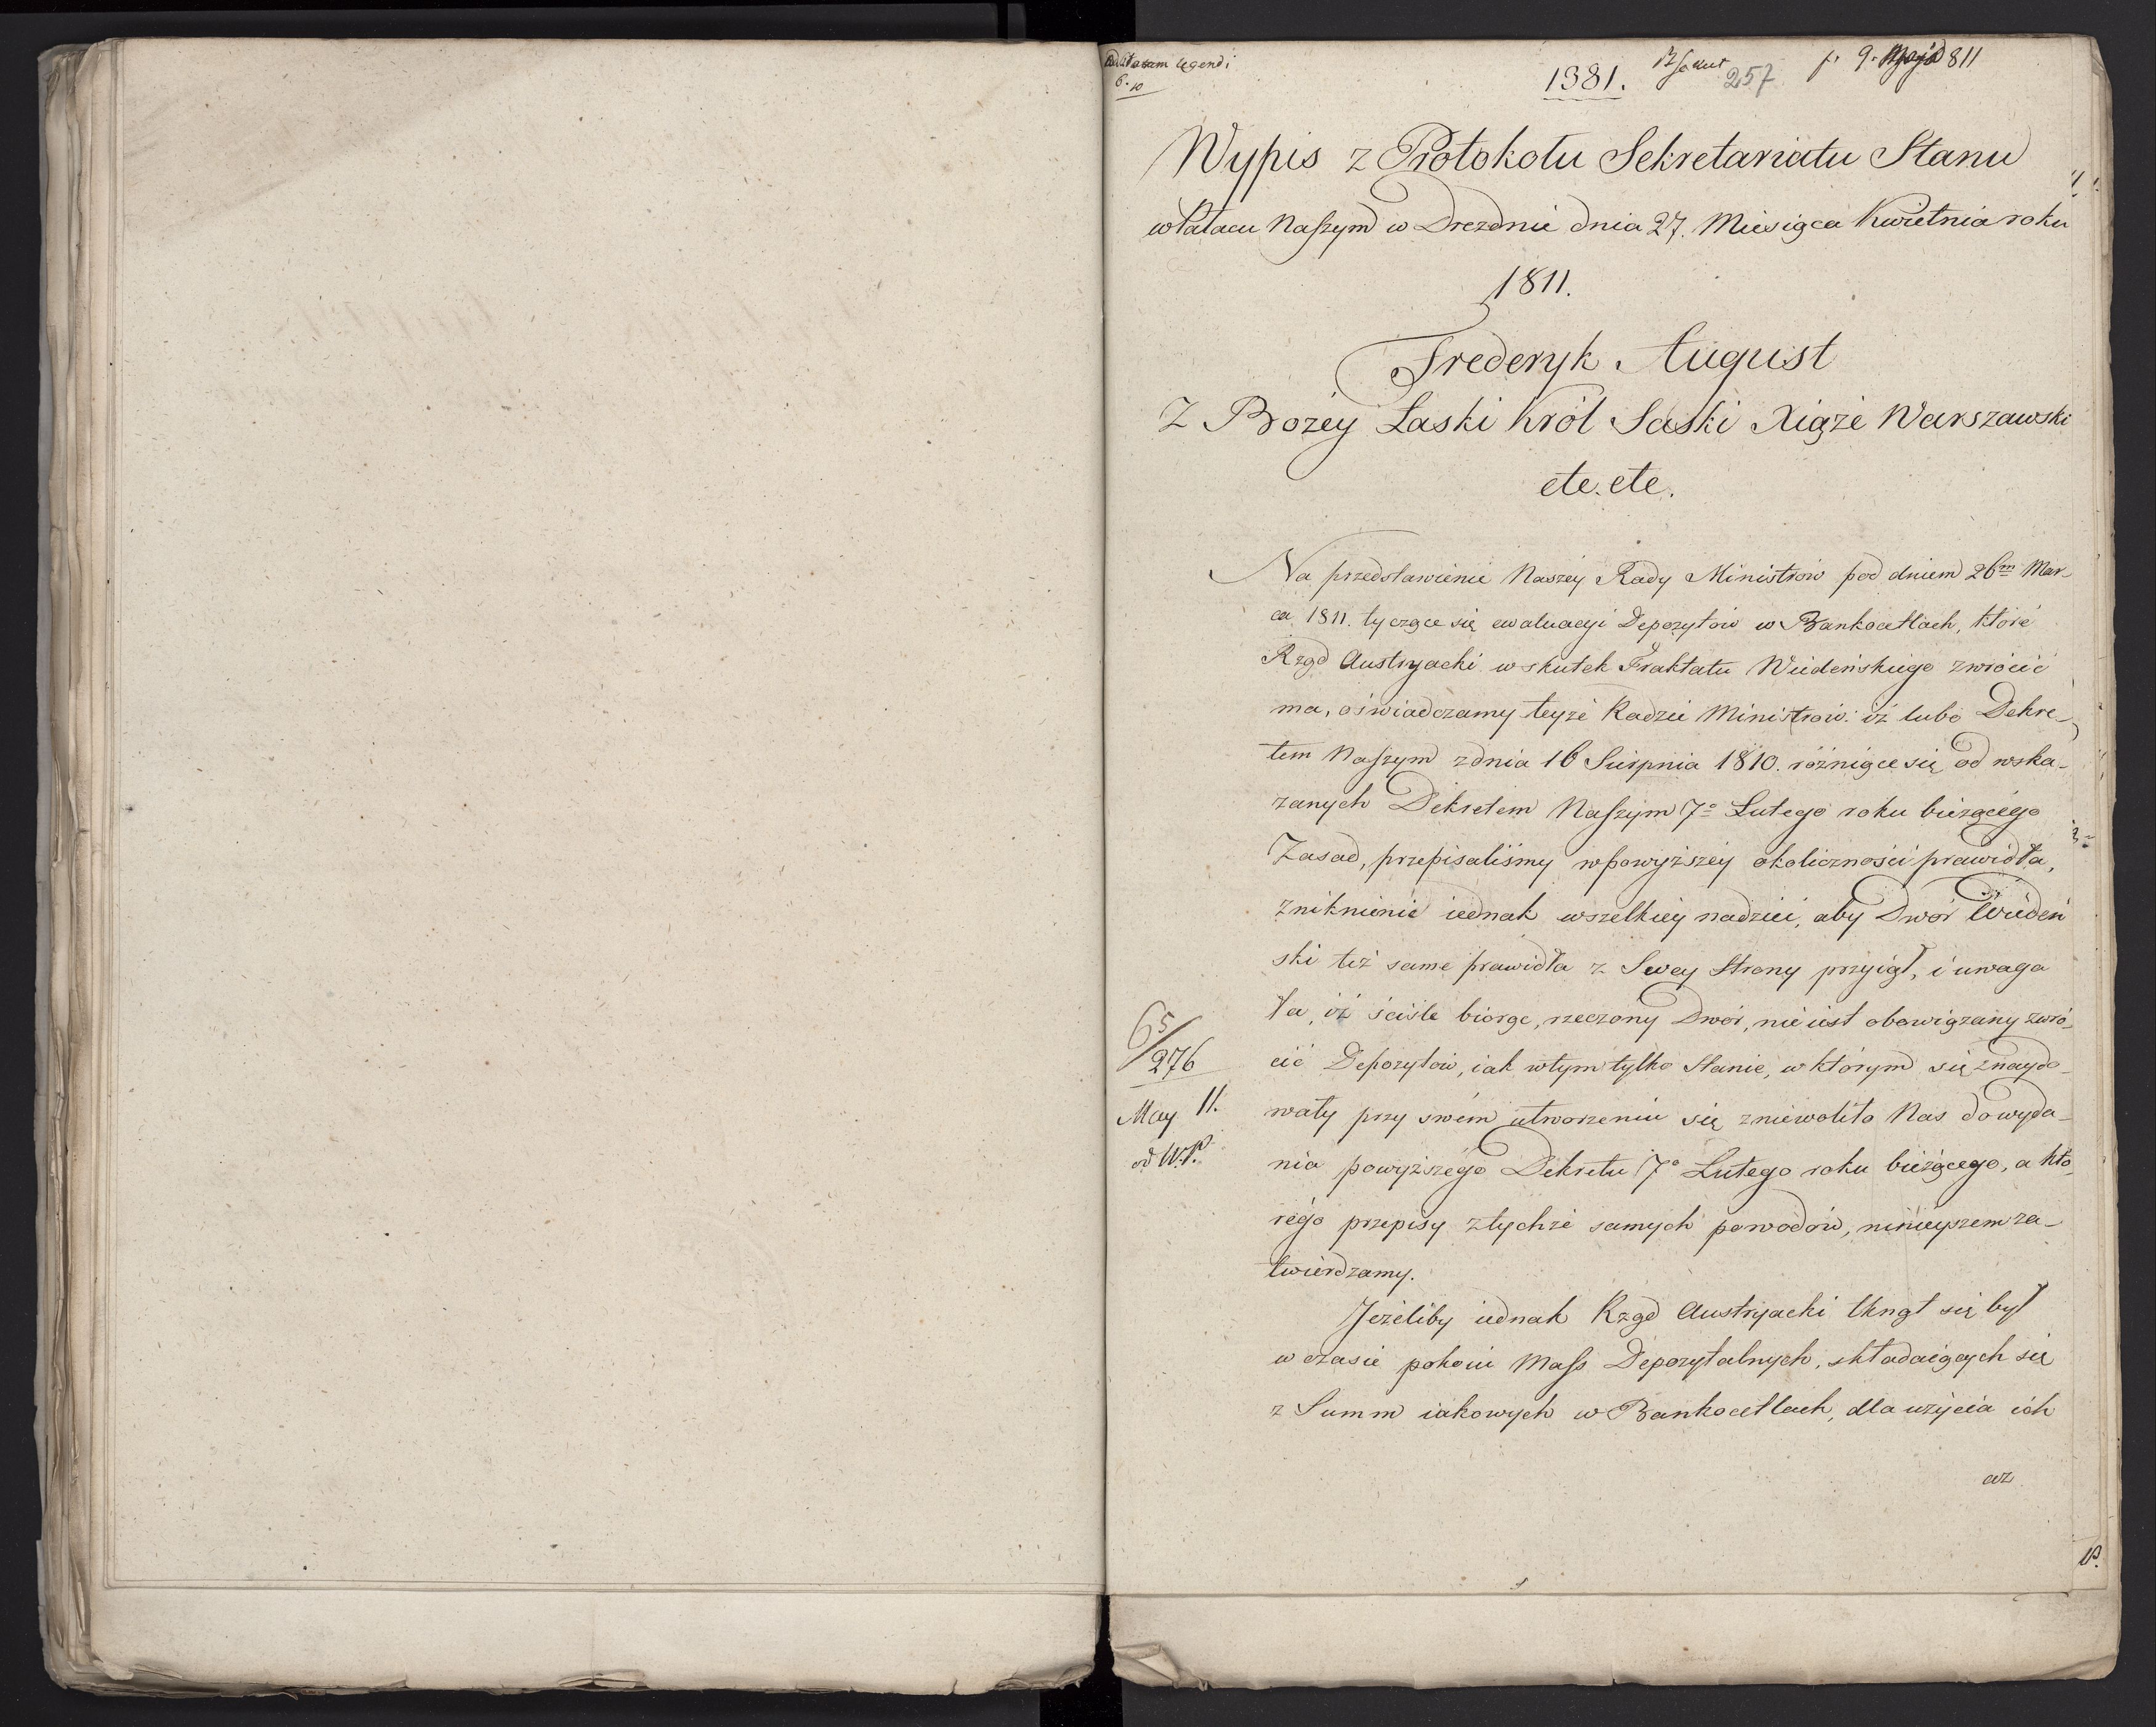 legendi
6. 10
1381.
257
9. 811
Wypis z Protokołu Sekretariatu Stanu
w Pałacu Naszym w Dreznie dnia 27. Miesiąca Kwietnia roku
1811.
Frederyk August
Z Bozey Łaski Król Saski Xiąże Warszawski
etc. etc.
Na przedstawienie Naszey Rady Ministrów pod dniem 26m Mar-
ca 1811. tyczące się ewaluacyi Depozytów w Bankocetlach, które
Rząd Austryacki w skutek Traktatu Wiedeńskiego zwrócić
ma, oświadczamy teyże Radzie Ministrów: iż lubo Dekre-
tem Naszym z dnia 16 Sierpnia 1810. różniące się od wska-
zanych Dekretem Naszym 7o Lutego roku bieżącego
Zasad, przepisaliśmy w powyższey okoliczności prawidła,
zniknienie iednak wszelkiey nadziei, aby Dwór Wiedeń
ski też same prawidła z Swey Strony przyiął, i uwaga
ta, iż ściśle biorąc, rzeczony Dwór, nie iest obowiązany zwró-
cić Depozytów, iak w tym tylko Stanie, w którym się znaydo-
wały przy swém utworzeniu się zniewoliło Nas do wyda-
nia powyższego Dekretu 7o Lutego roku bieżącego, a któ-
régo przepisy z tychże samych powodów, ninieyszem za-
twierdzamy.
Jeżeliby iednak Rząd Austryacki tknął się był
w czasie pokoiu Mass Depozytalnych, składaiących się
z Summ iakowych w Bankocetlach, dla użycia ich
az
65/276
May 11.
od W.P.